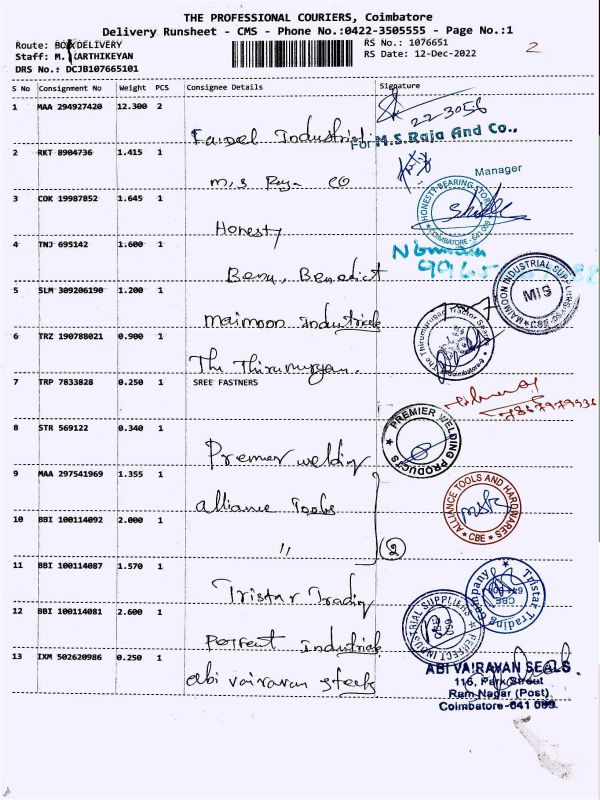 THE PROFESSIONAL COURIERS, Coimbatore
Delivery Runsheet - CMS - Phone No.:0422-3505555 - Page No.:1
Route: BOX DELIVERY
RS No.: 1076651
2
Staff: M. KARTHIKEYAN
RS Date: 12-Dec-2022
DRS No.: DCJB107665101
S No Consignment No Weight PCS Consignee Details Signature
1 MAA 294927420 12.300 2
22-3056
Faizel Industrial
For M.S.Raja And Co.,
2 RKT 8904736 1.415 1
Manager
M.S Raja CO
3 COK 19987852 1.645 1
HONESTY BEARING STORE
COIMBATORE - 641 009
Honesty
4 TNJ 695142 1.600 1
Benu, Benedict
5 SLM 309206190 1.200 1
MAIMOON INDUSTRIAL SUPPLIERS
MIS
CBE
Maimoon Industrials
6 TRZ 190788021 0.900 1
The Thirumurugan Tractor Spares
Coimbatore-9
The Thirumurgan.
7 TRP 7833828 0.250 1 SREE FASTNERS
8 STR 569122 0.340 1
PREMIER WELDING PRODUCTS
Premier welding
9 MAA 297541969 1.355 1
ALLIANCE TOOLS AND HARDWARES
CBE
Alliance Tools
10 BBI 100114092 2.000 1
"
2
11 BBI 100114087 1.570 1
Tristar Trading Company
CBE
Tristar Trading
12 BBI 100114081 2.600 1
PERFECT INDUSTRIAL SUPPLIERS
Perfect Industrials
13 IXM 502620986 0.250 1
abi vairavan steels
ABI VAIRAVAN SEALS
116, Park Street
Ram Nagar (Post)
Coimbatore-641 009